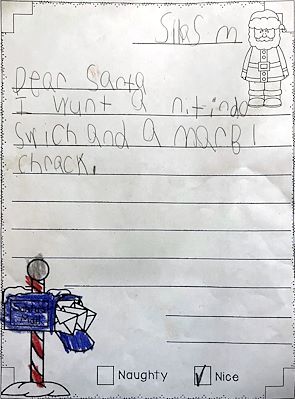 Silas m
Dear Santa
I wunt a nitindo
swich and a marbl
chrack.
Santa
Mail
Naughty
Nice